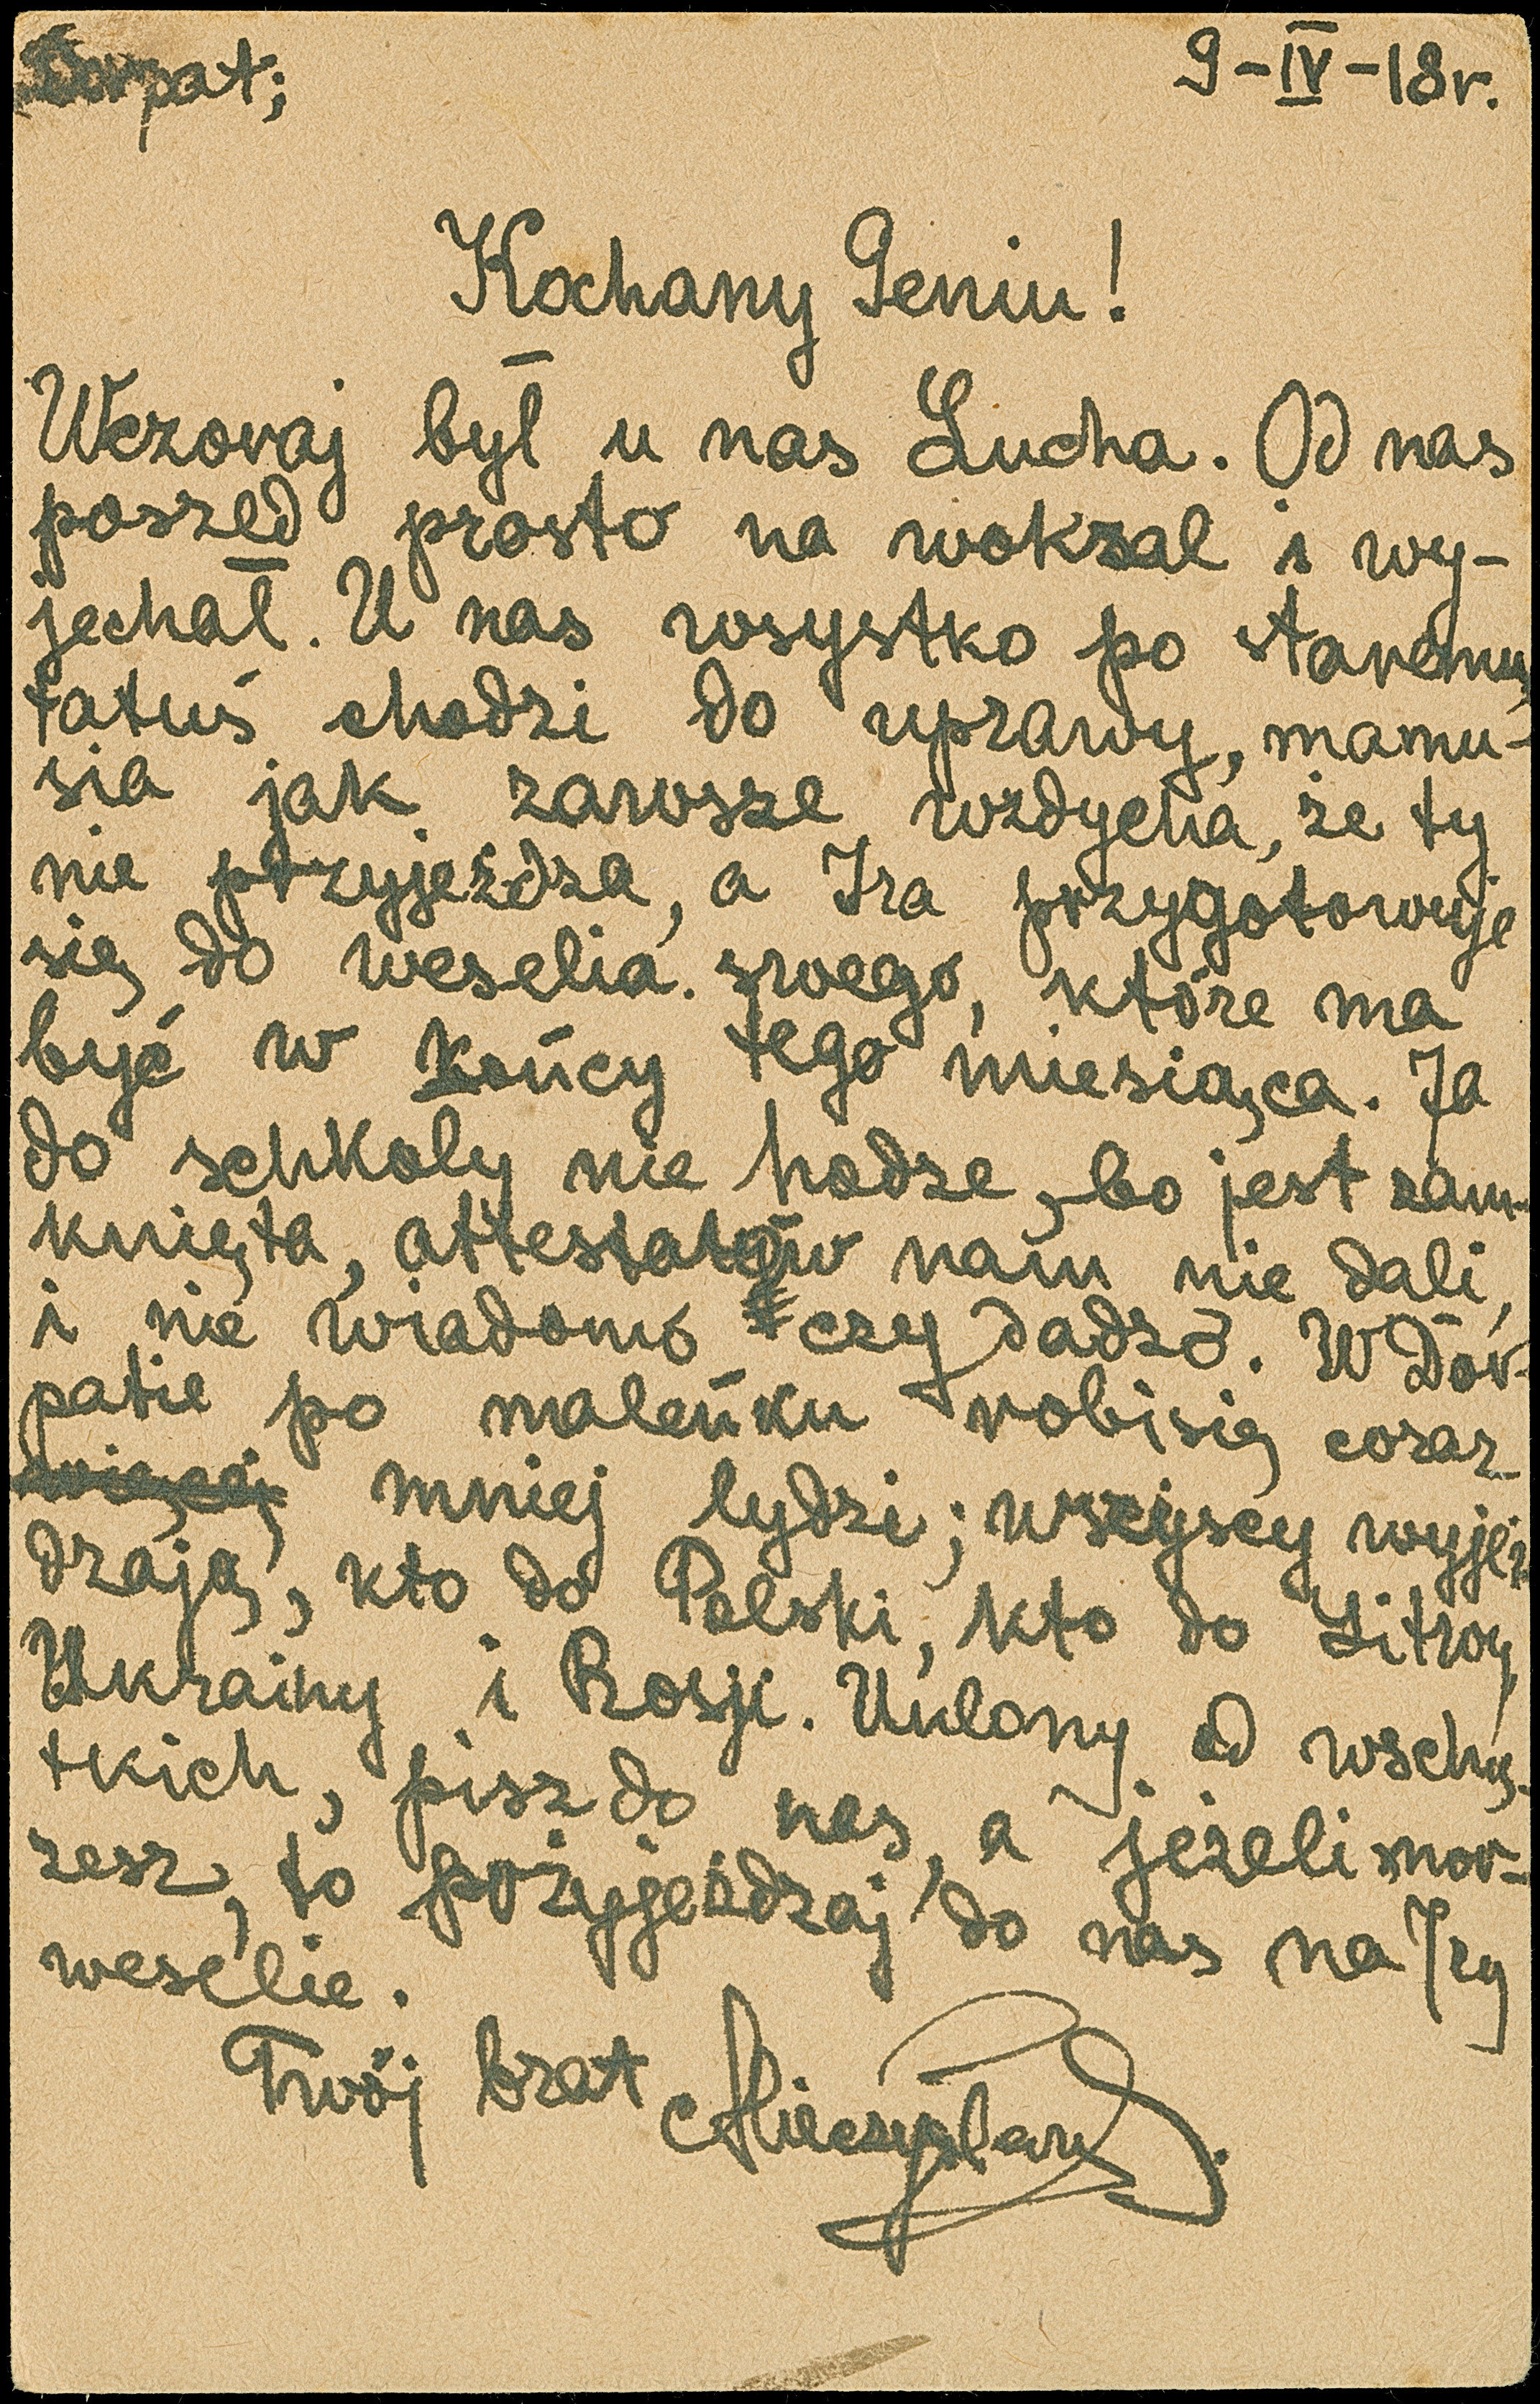 Dorpat;
9-IV-18r.
Kochany Geniu!
Wczoraj był u nas Lucha. Od nas
poszed prosto na wokzal i wy-
jechał. U nas wsystko po staromu,
tatuś chodzi do uprawy, mamu-
sia jak zawsze wzdycha, że ty
nie przyjeżdza, a Ira przygotowuje
się do weselia swego, które ma
być w końcy tego miesiąca. Ja
do schkoly nie hodze, bo jest zam-
knięta, attestatów nam nie dali,
i nie wiadomo czy dadzą. W Dor-
patie po maleńku robi się coraz
więcej mniej lydzi; wszyscy wyjeż-
dzają, kto do Polski, kto do Litwy,
Ukrainy i Rosji. Uklony od wschy-
tkich, pisz do nas, a jeżeli mor-
zesz, to pożyjeżdzaj do nas na Iry
weselie.
Twój brat Mieczysław